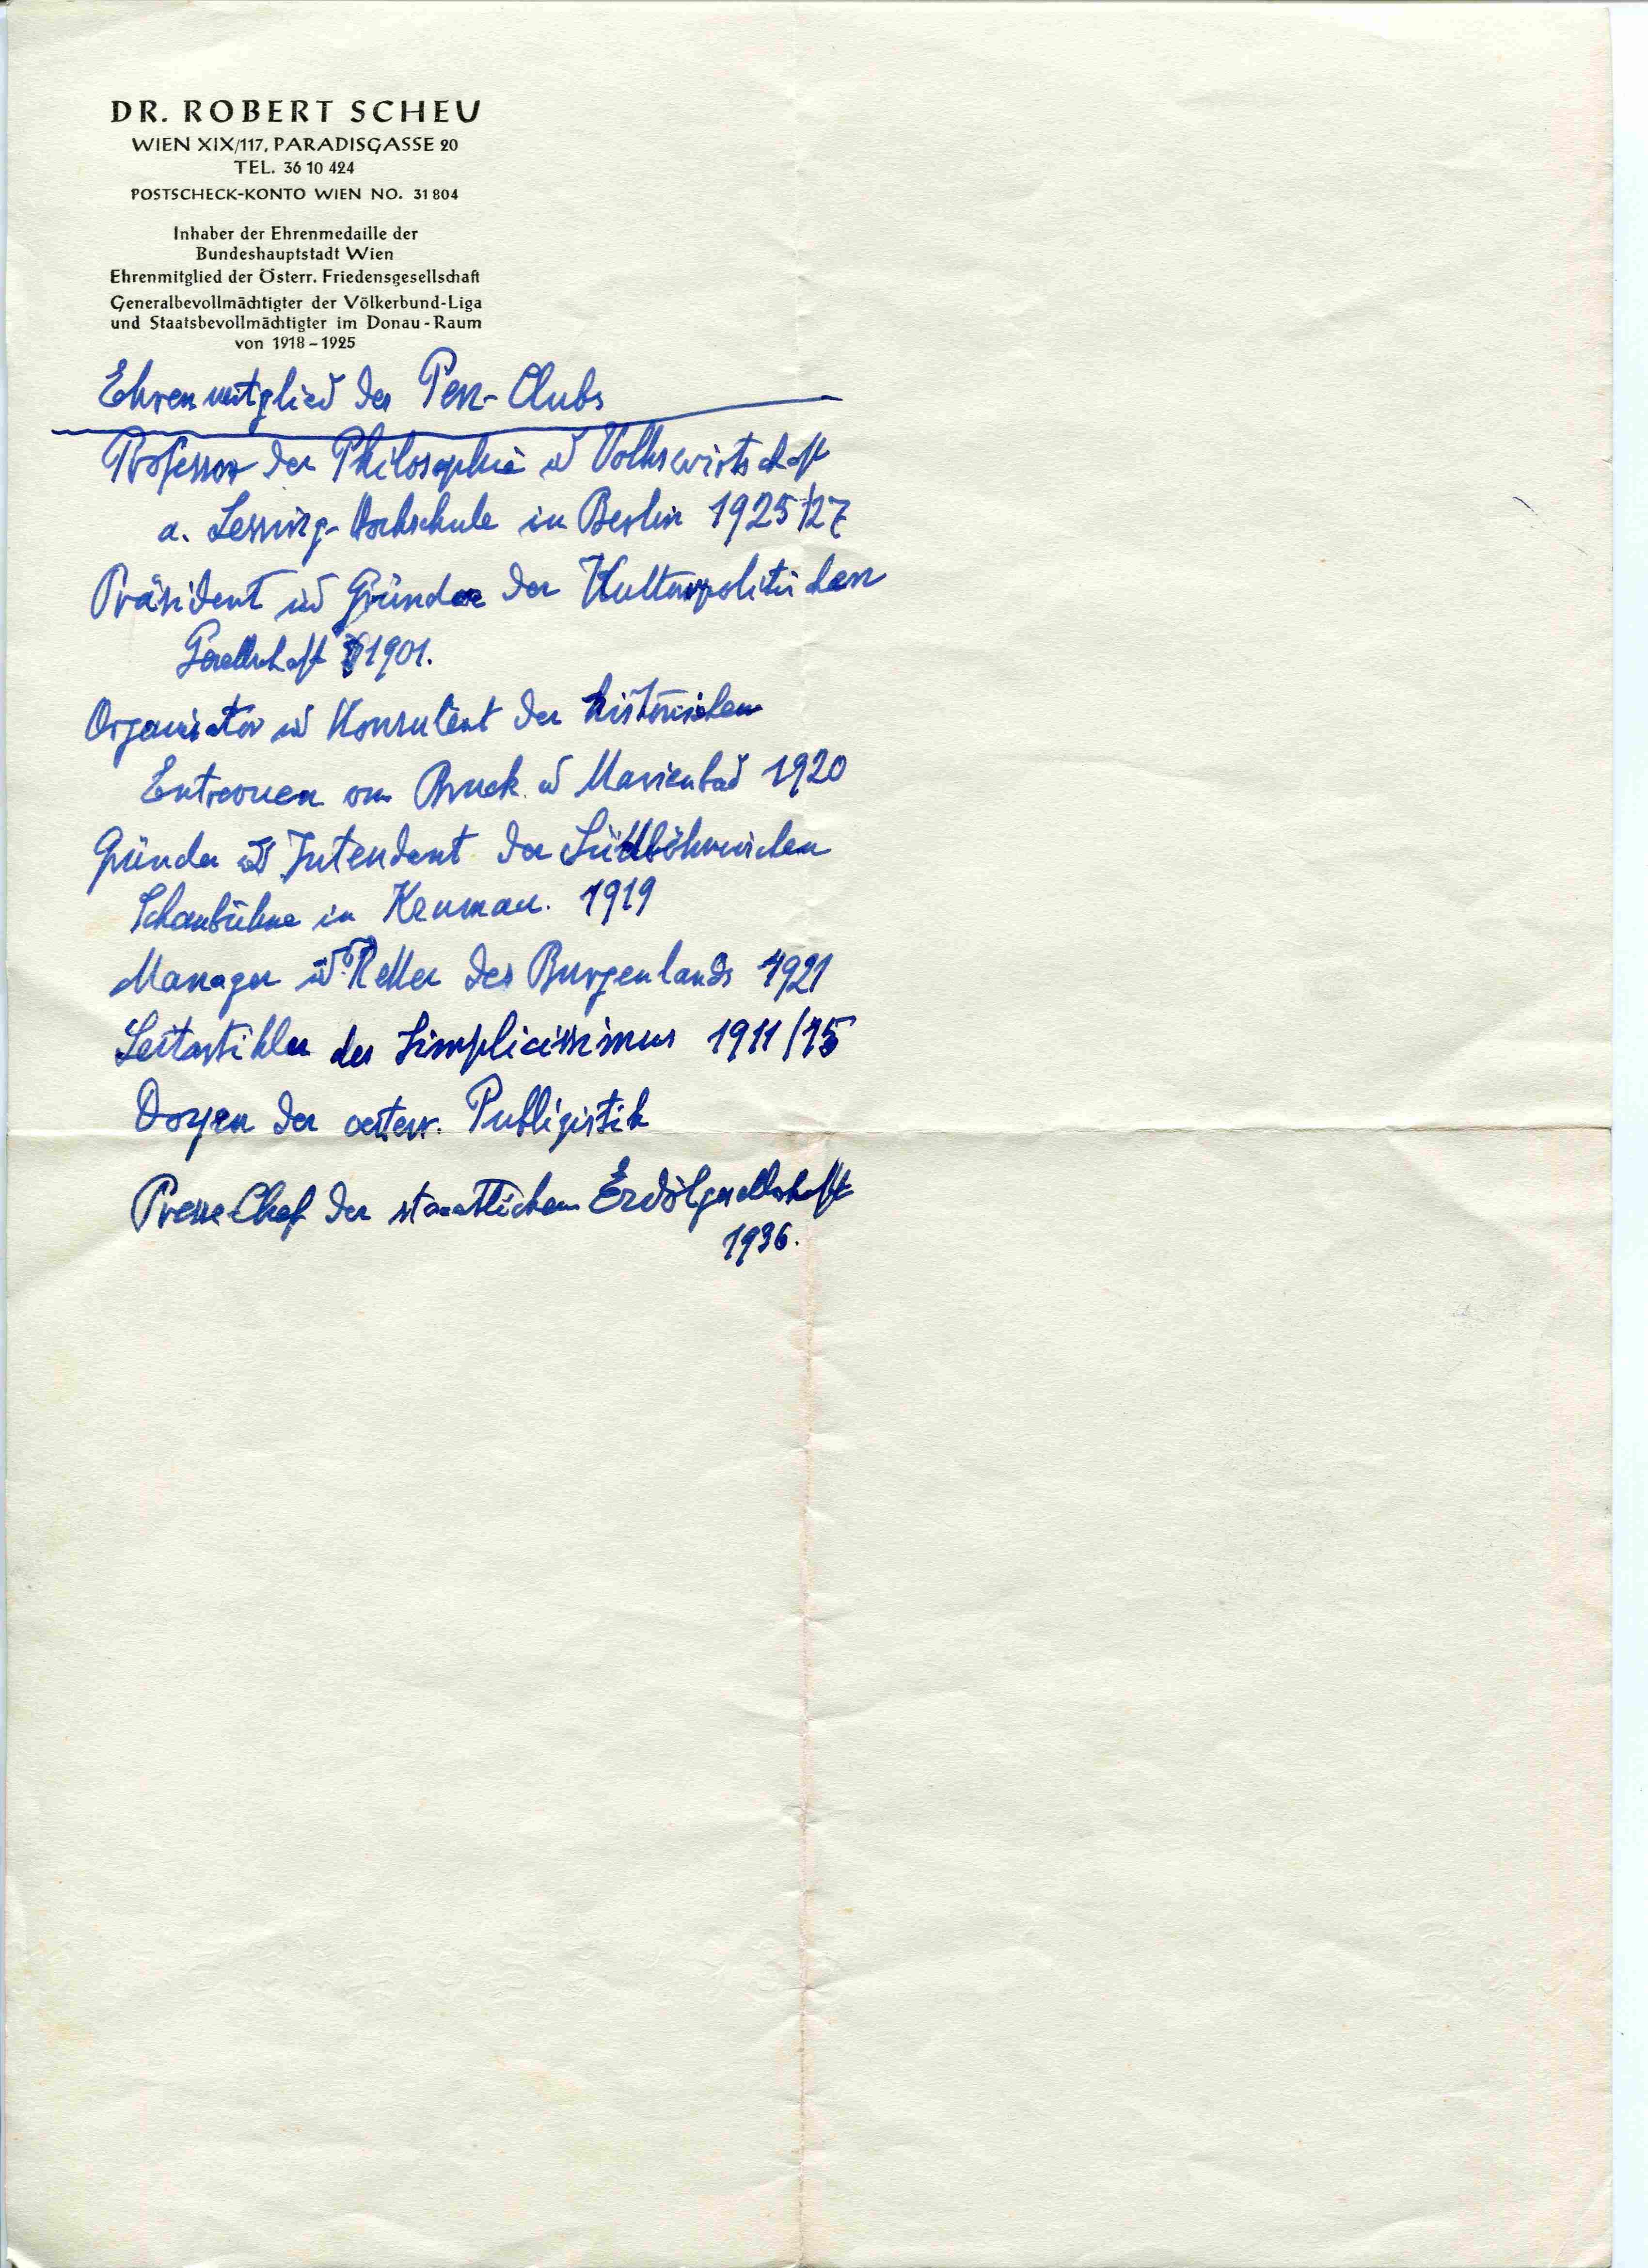 DR. ROBERT SCHEU
WIEN XIX/117, PARADISGASSE 20
TEL. 36 10 424
POSTSCHECK-KONTO WIEN NO. 31 804
Inhaber der Ehrenmedaille der
Bundeshauptstadt Wien
Ehrenmitglied der Österr. Friedensgesellschaft
Generalbevollmächtigter der Völkerbund-Liga
und Staatsbevollmächtigter im Donau-Raum
von 1918–1925
Ehrenmitglied des Pen-Clubs
Professor der Philosophie u Volkswirtschaft
a. Lessing-Hochschule in Berlin 1925/27
Präsident u Gründer der Kulturpolitischen
Gesellschaft 1901.
Organisator u Konsulent der historischen
Entrevuen von Bruck u Marienbad 1920
Gründer u Intendant der Südböhmischen
Schaubühne in Krumau. 1919
Manager u Retter des Burgenlands 1921
Leitartikler des Simplicissimus 1911/15
Doyen der oesterr. Publizistik
Presse Chef der staatlichen Erdölgesellschaft
1936.